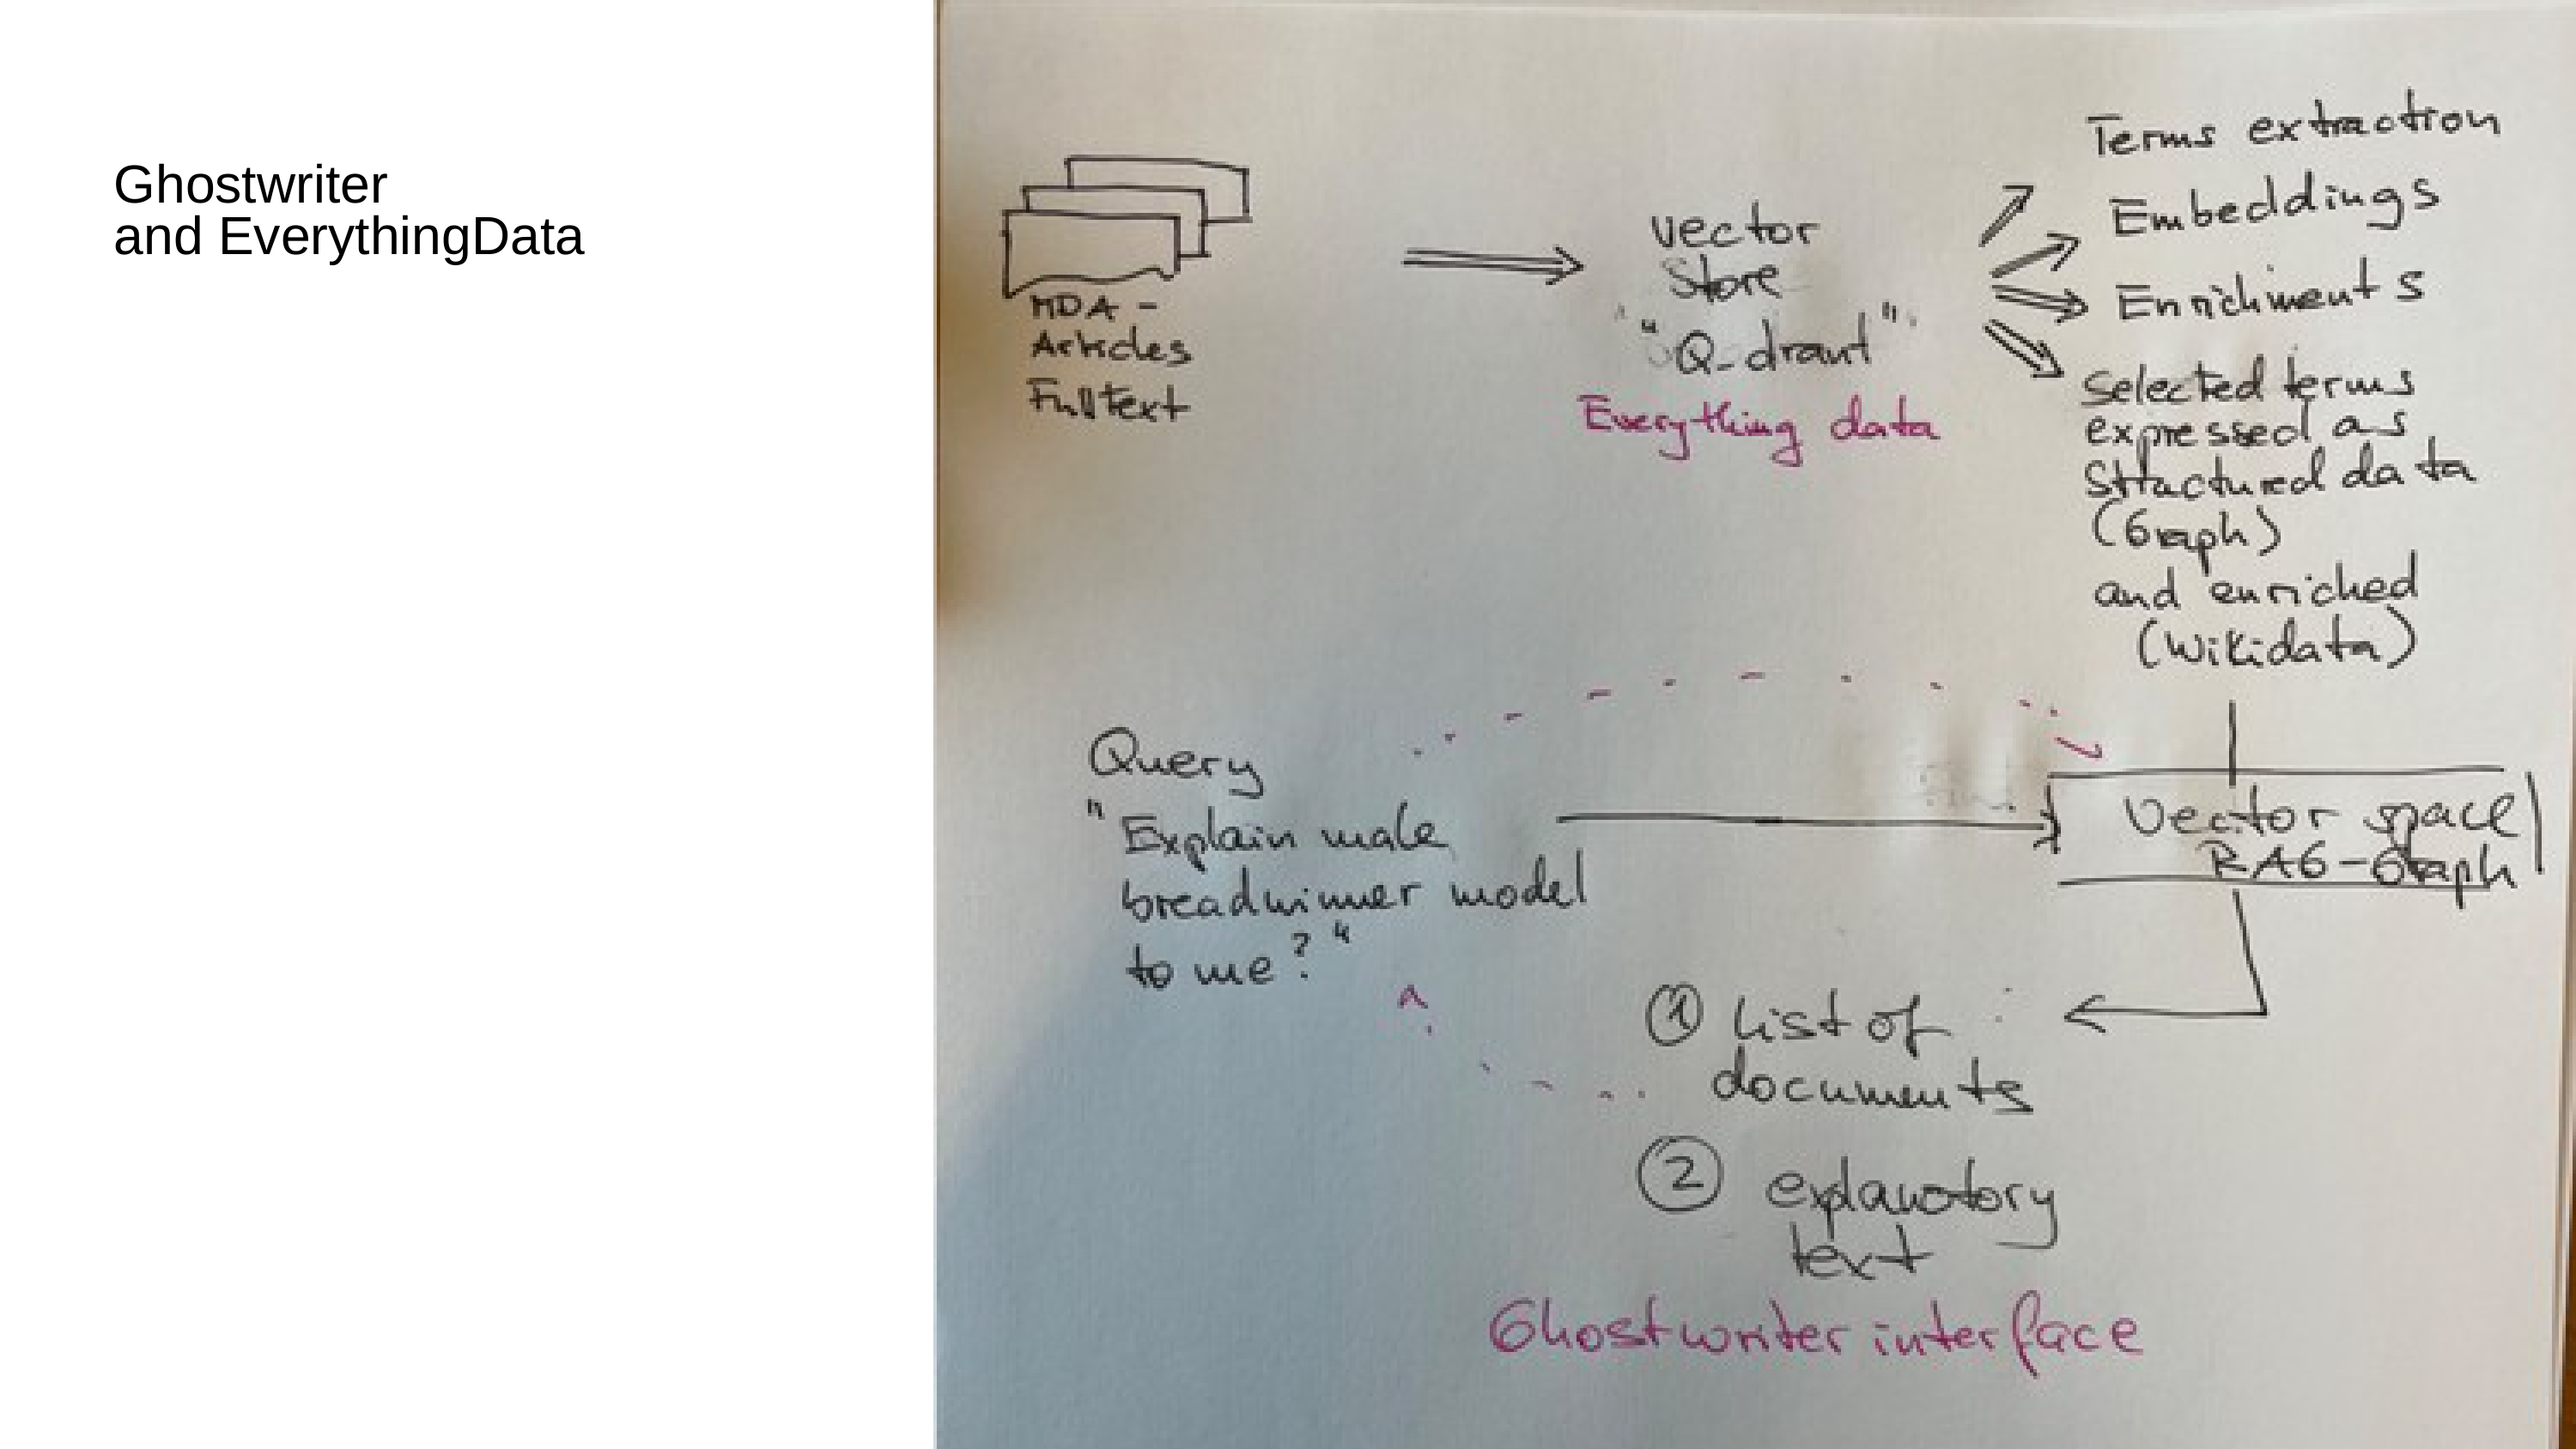 Ghostwriter
and EverythingData
MDA -
Articles
Fulltext
vector
Store
"Q-drant"
Everything data
Terms extraction
Embeddings
Enrichments
Selected terms
expressed as
Structured data
(Graph)
and enriched
(Wikidata)
Query
"Explain male
breadwinner model
to me?"
Vector space
RAG-Graph
① List of
documents
② explanatory
text
Ghostwriter interface